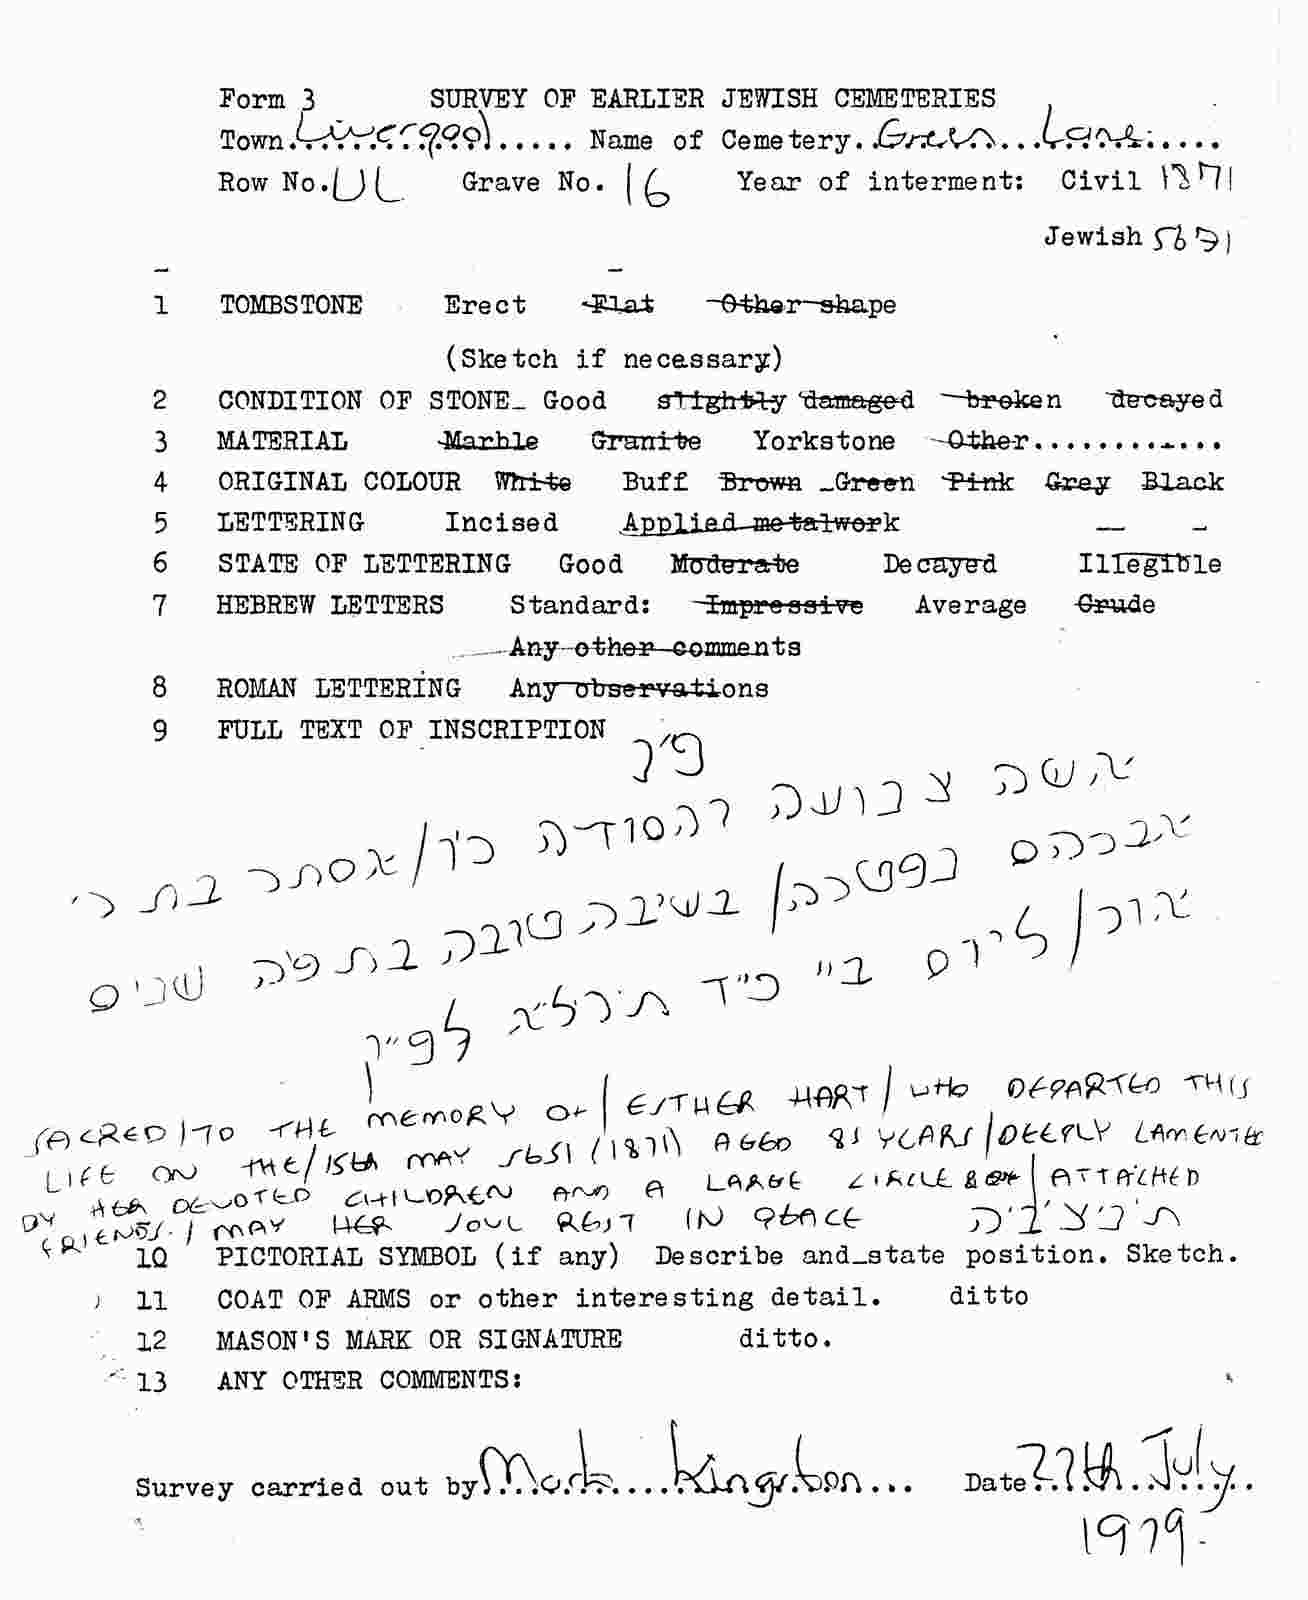 Form 3 SURVEY OF EARLIER JEWISH CEMETERIES
Town Liverpool ..... Name of Cemetery.. Green Lane .....
Row No. UL Grave No. 16 Year of interment: Civil 1871
Jewish 5631
1 TOMBSTONE Erect Flat Other shape
(Sketch if necessary)
2 CONDITION OF STONE_ Good slightly damaged broken decayed
3 MATERIAL Marble Granite Yorkstone Other............
4 ORIGINAL COLOUR White Buff Brown Green Pink Grey Black
5 LETTERING Incised Applied metalwork
6 STATE OF LETTERING Good Moderate Decayed Illegible
7 HEBREW LETTERS Standard: Impressive Average Crude
Any other comments
8 ROMAN LETTERING Any observations
9 FULL TEXT OF INSCRIPTION
פ״נ
אשה צנועה
אסתר בת ר׳
אברהם נפטרה/ בשיבה טובה בת פ״ה שנים
אור/ ליום ב״ כ״ד תרל״א לפ״ק
SACRED/TO THE MEMORY OF/ESTHER HART/WHO DEPARTED THIS
LIFE ON THE/15th MAY 5651 (1871) AGED 85 YEARS/DEEPLY LAMENTED
BY HER DEVOTED CHILDREN AND A LARGE CIRCLE OF/ATTACHED
FRIENDS./MAY HER SOUL REST IN PEACE ת׳נ׳צ׳ב׳ה
10 PICTORIAL SYMBOL (if any) Describe and_state position. Sketch.
11 COAT OF ARMS or other interesting detail. ditto
12 MASON'S MARK OR SIGNATURE ditto.
13 ANY OTHER COMMENTS:
Survey carried out by Mark Kingston ... Date 27th July
1979.